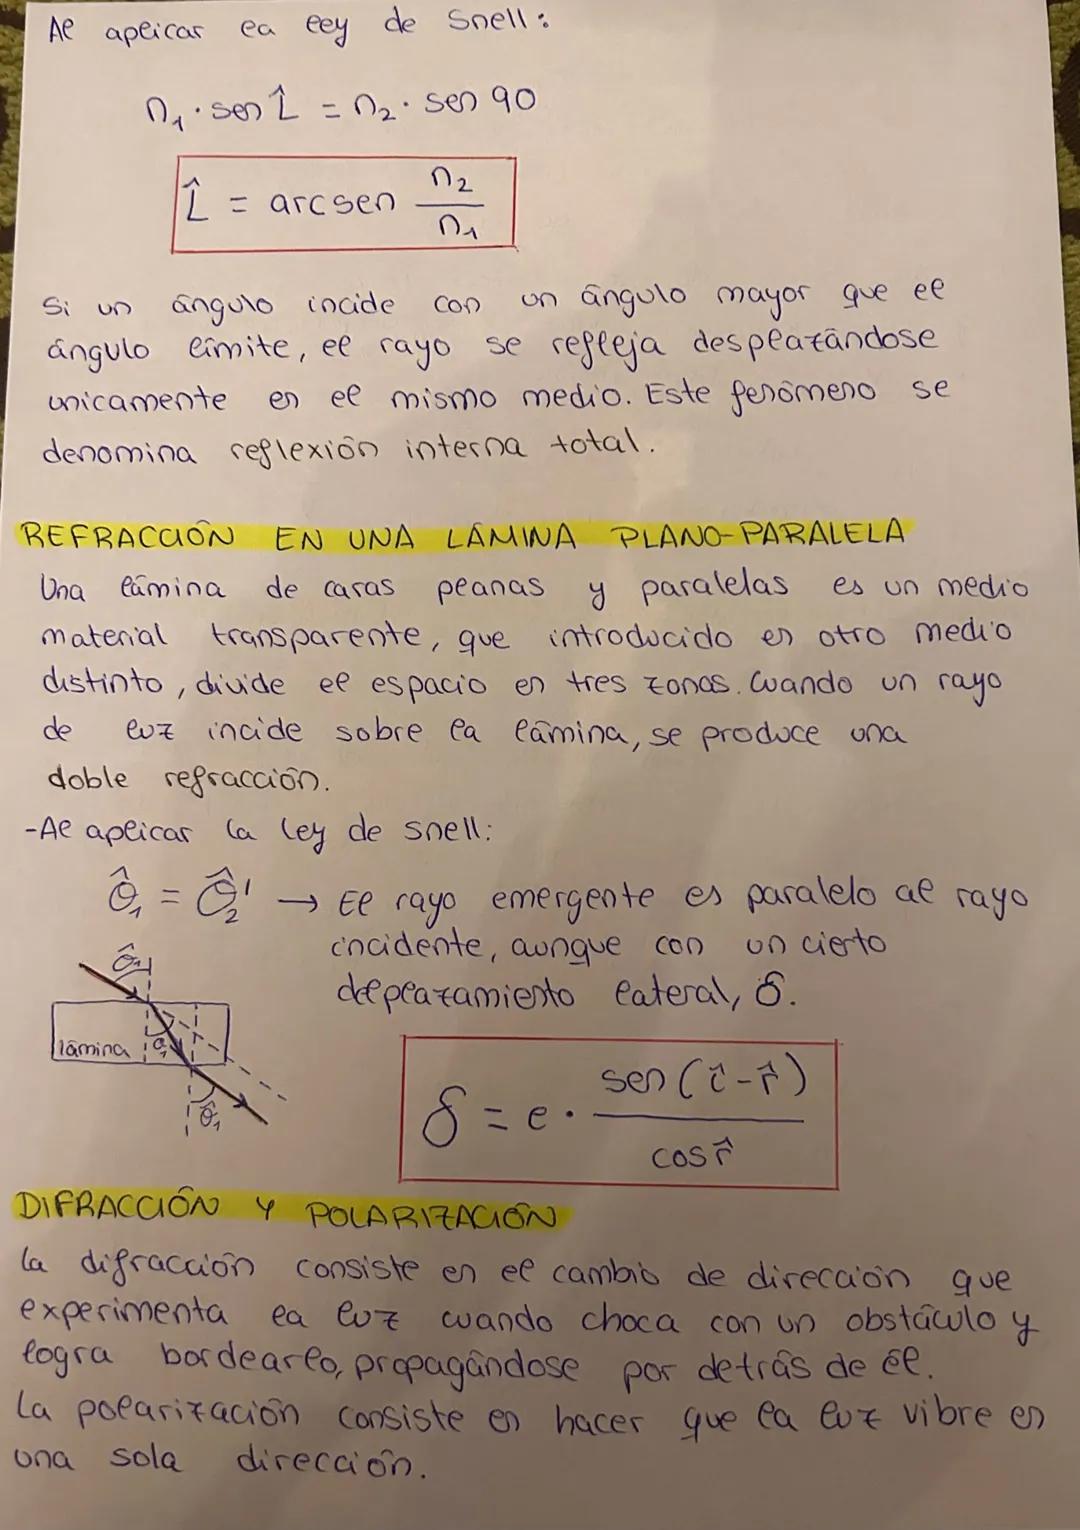 Al aplicar la ley de Snell:
n₁ · sen L̂ = n₂ · sen 90
L̂ = arcsen n₂/n₁
Si un ángulo incide con un ángulo mayor que el
ángulo límite, el rayo se refleja desplazándose
unicamente en el mismo medio. Este fenómeno se
denomina reflexión interna total.
REFRACCIÓN EN UNA LÁMINA PLANO-PARALELA
Una lámina de caras planas y paralelas es un medio
material transparente, que introducido en otro medio
distinto, divide el espacio en tres zonas. Cuando un rayo
de luz incide sobre la lámina, se produce una
doble refracción.
-Al aplicar la ley de snell:
θ̂₁ = θ̂₂' → El rayo emergente es paralelo al rayo
incidente, aunque con un cierto
delplazamiento lateral, δ.
θ̂₁
lámina
θ̂₁
δ = e · sen (î - r̂) / cos r̂
DIFRACCIÓN Y POLARIZACIÓN
La difracción consiste en el cambio de dirección que
experimenta la luz cuando choca con un obstáculo y
logra bordearlo, propagándose por detrás de él.
La polarización consiste en hacer que la luz vibre en
una sola dirección.